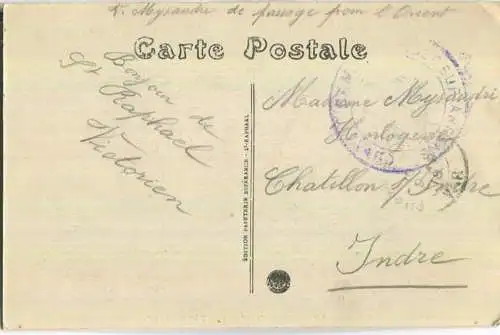 V. Mysandre de passage pour l'Orient
Carte Postale
Bonjour de
St Raphael
Victorien
EDITION PAPETERIE BONFRANCE - ST-RAPHAEL
Madame Mysandre
Horlogerie
Chatillon s/ Indre
Indre